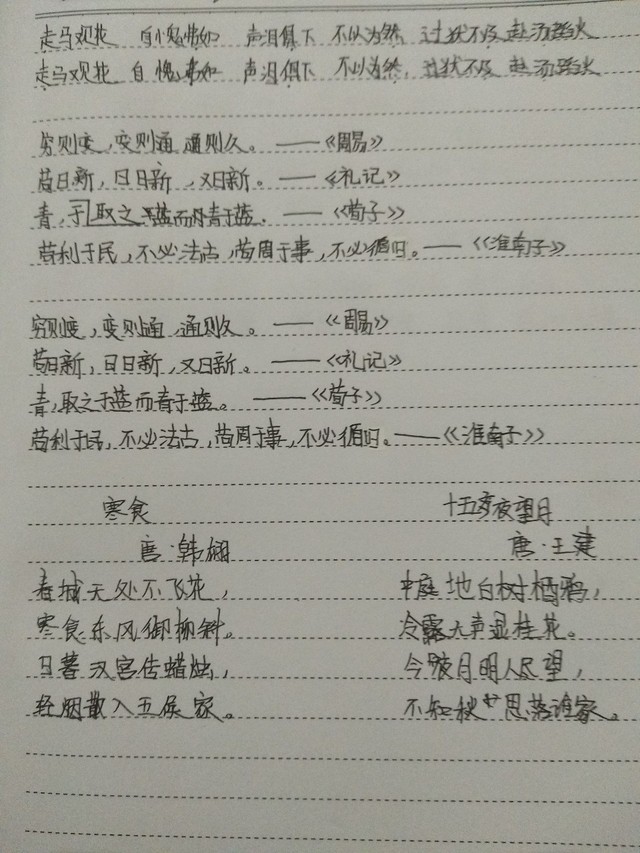 走马观花 自愧弗如 声泪俱下 不以为然 过犹不及 赴汤蹈火
走马观花 自愧弗如 声泪俱下 不以为然 过犹不及 赴汤蹈火
穷则变,变则通,通则久。——《周易》
苟日新,日日新,又日新。——《礼记》
青,取之于蓝而青于蓝。——《荀子》
苟利于民,不必法古,苟周于事,不必循旧。——《淮南子》
穷则变,变则通,通则久。——《周易》
苟日新,日日新,又日新。——《礼记》
青,取之于蓝而青于蓝。——《荀子》
苟利于民,不必法古,苟周于事,不必循旧。——《淮南子》
寒食 十五夜望月
唐·韩翃 唐·王建
春城无处不飞花, 中庭地白树栖鸦,
寒食东风御柳斜。 冷露无声湿桂花。
日暮汉宫传蜡烛, 今夜月明人尽望,
轻烟散入五侯家。 不知秋思落谁家。